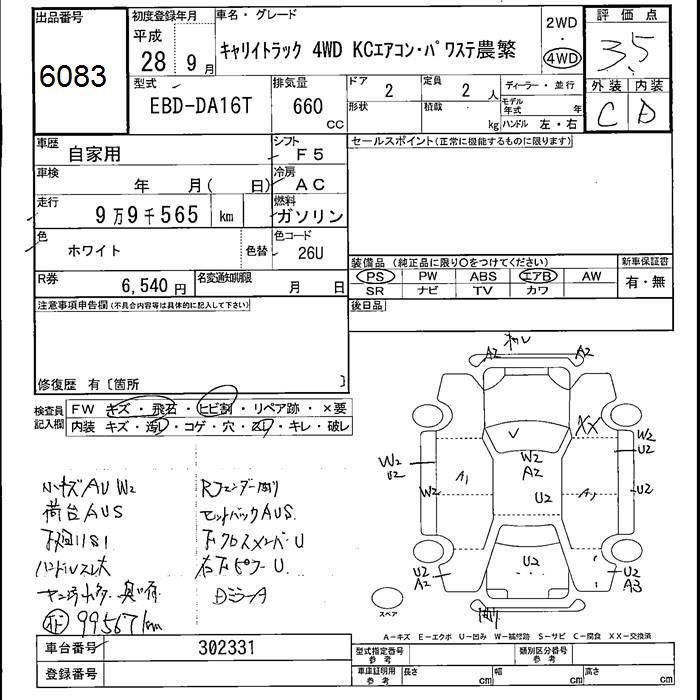 出品番号
6083
初度登録年月
平成
28 9月
車名・グレード
キャリイトラック 4WD KCエアコン・パワステ農繁
2WD
・
4WD
評価点
3.5
外装 内装
C D
型式
EBD-DA16T
排気量
660
cc
ドア
2
定員
2 人
形状
積載
kg
ディーラー・並行
モデル年式 年
ハンドル 左・右
車歴
自家用
シフト
F5
車検
年 月( 日)
冷房
AC
走行
9万9千565 km
燃料
ガソリン
色
ホワイト
色替
色コード
26U
R券
6,540円
名変通知期限
月 日
セールスポイント(正常に機能するものに限ります)
装備品 (純正品に限り○をつけてください)
PS PW ABS エアB AW
SR ナビ TV カワ
新車保証書
有・無
後日品
注意事項申告欄(不具合内容等は具体的に記入して下さい)
修復歴 有〔箇所 〕
検査員記入欄
FW キズ・飛石・ヒビ割・リペア跡・×要
内装 キズ・汚レ・コゲ・穴・スレ・キレ・破レ
小キズAU W2
荷台AUS
ハンドルスレ大
99567km
セットバックAUS
下クロスメンバーU
A2 A2
XX
W2
U2
W2
U2
W2
A1
V
W2
A2
U2
U2
U2
U2
A2
U2
A3
スペア
A-キズ E-エクボ U-凹み W-補修跡 S-サビ C-腐食 XX-交換済
車台番号
302331
登録番号
型式指定番号
参考
類別区分番号
参考
車庫証明用
参考
長さ cm
幅 cm
高さ cm